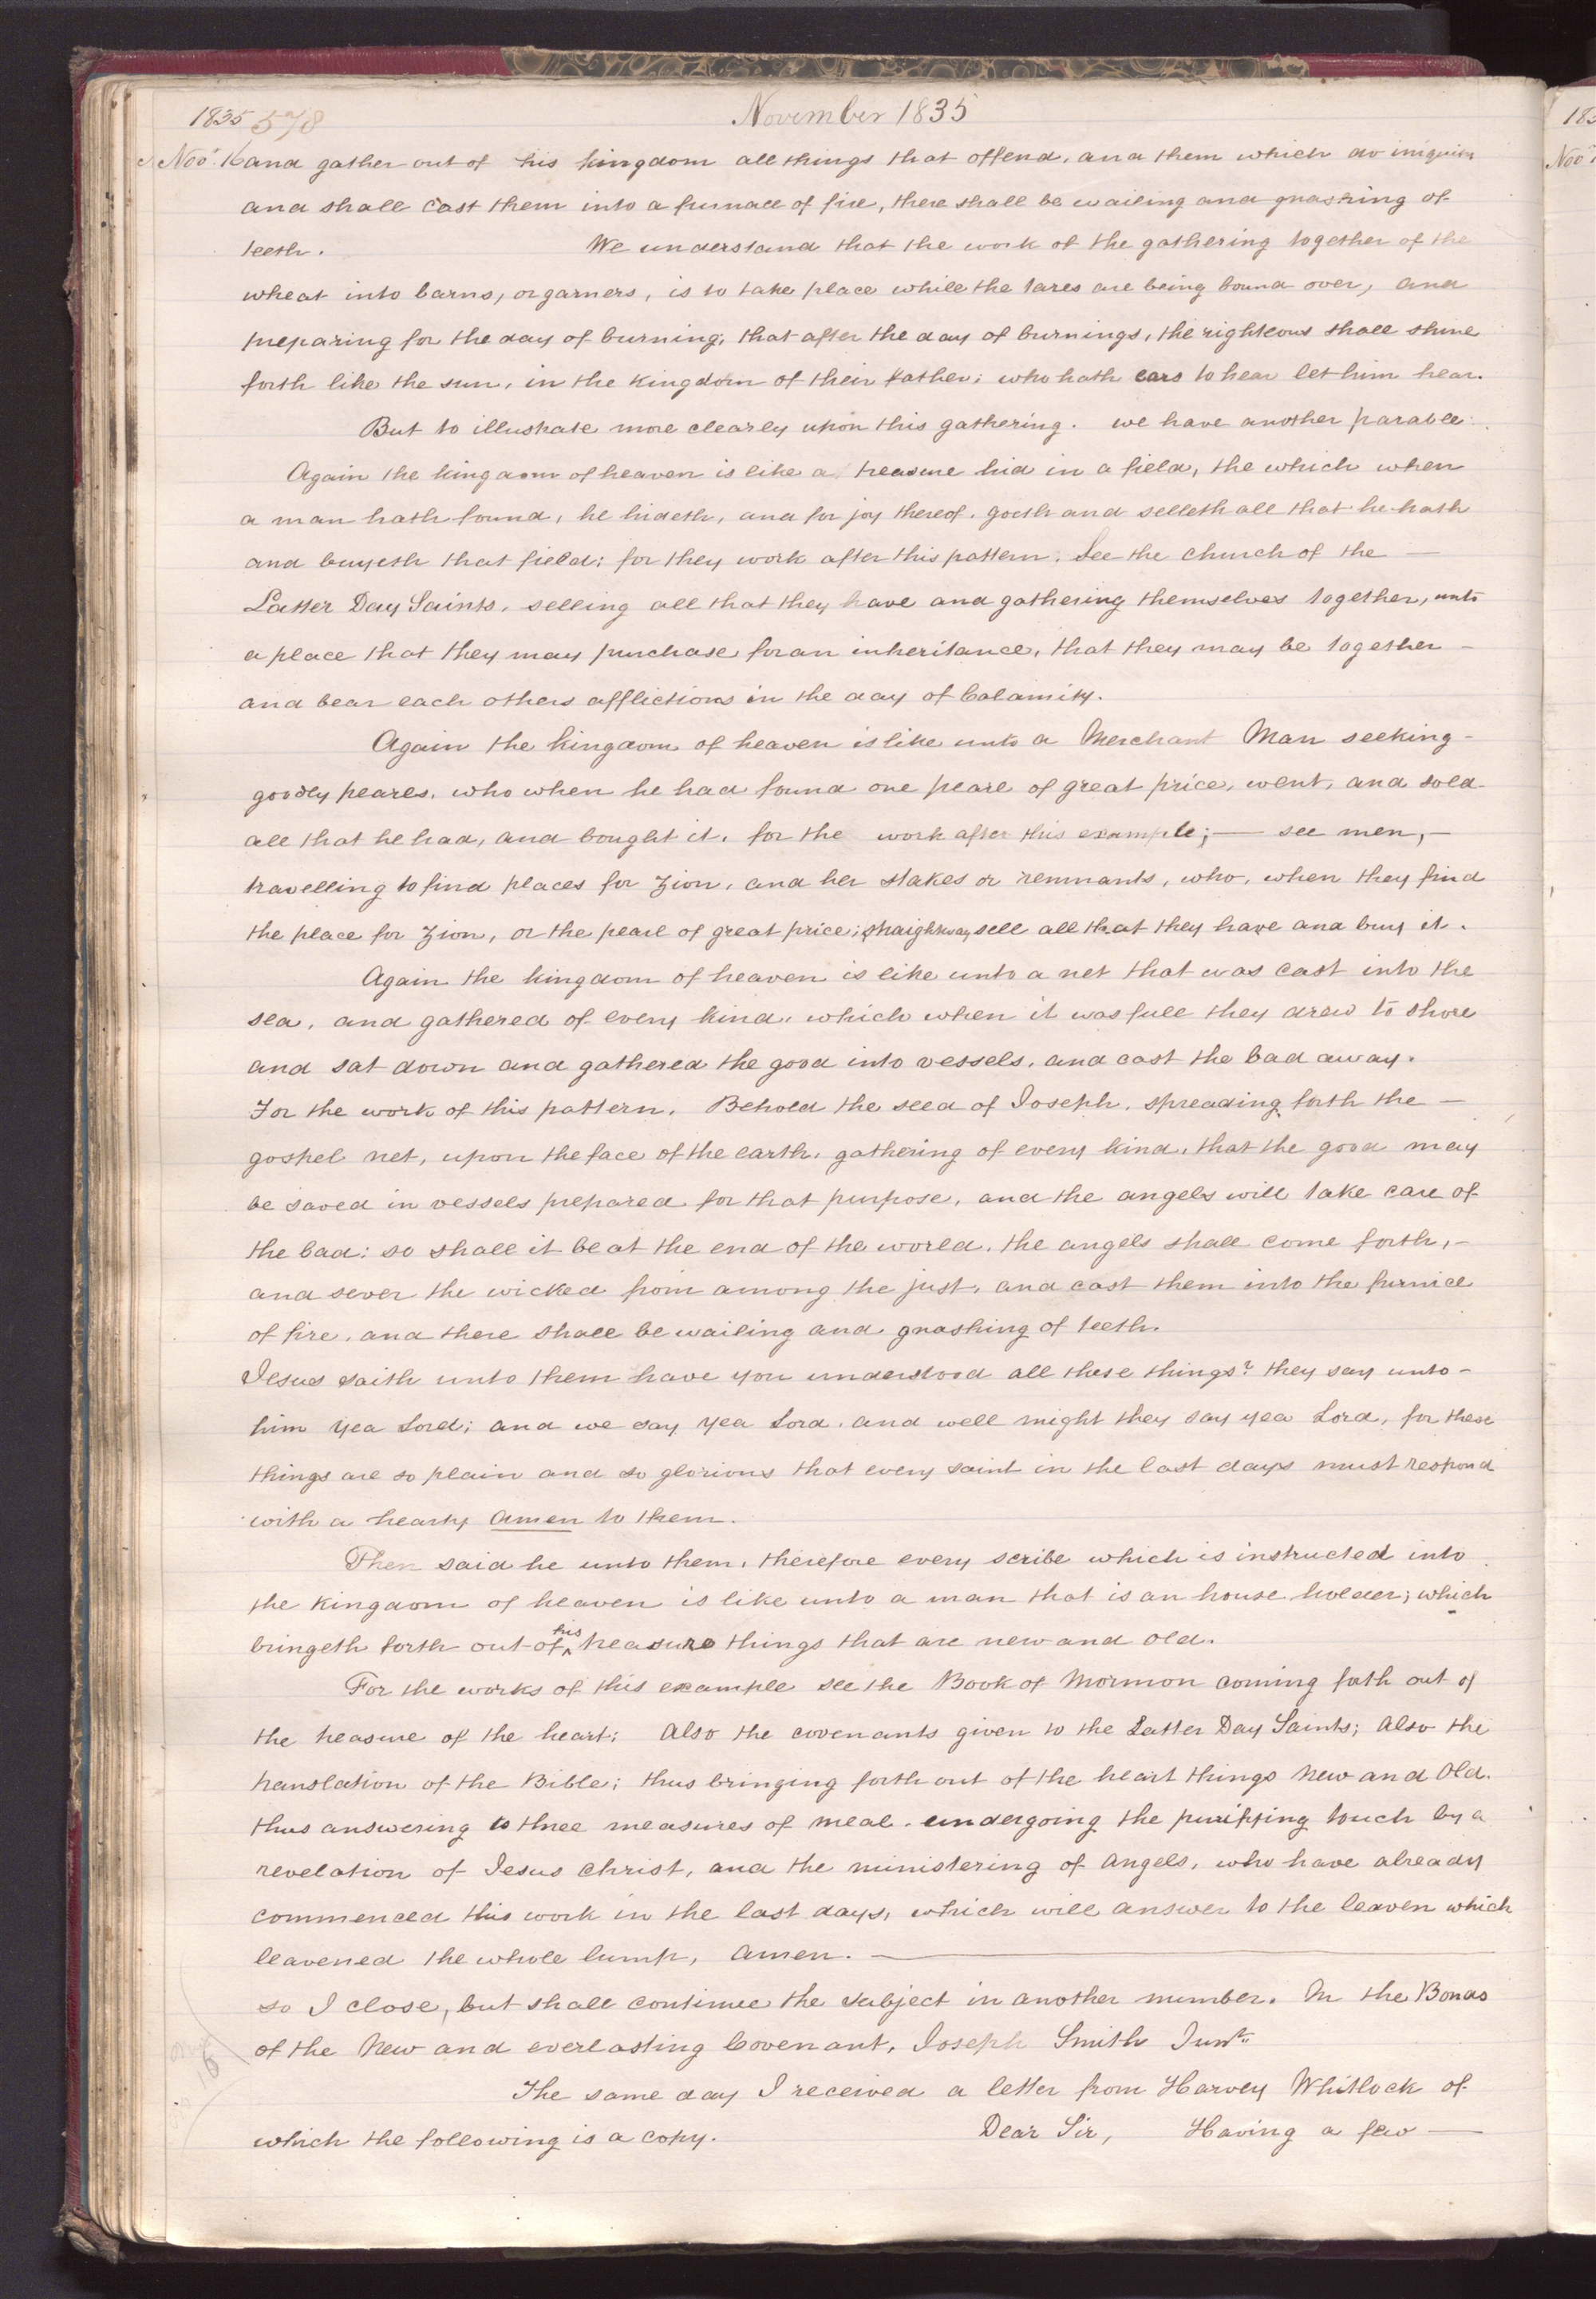 1835 578 November 1835
Nov. 16 and gather out of his kingdom all things that offend, and them which do iniquity
and shall cast them into a furnace of fire, there shall be wailing and gnashing of
teeth. We understand that the work of the gathering together of the
wheat into barns, or garners, is to take place while the tares are being bound over, and
preparing for the day of burning; that after the day of burnings, the righteous shall shine
forth like the sun, in the kingdom of their father; who hath ears to hear let him hear.
But to illustrate more clearly upon this gathering. we have another parable.
Again the kingdom of heaven is like a treasure hid in a field, the which when
a man hath found, he hideth, and for joy thereof, goeth and selleth all that he hath
and buyeth that field; for they work after this pattern. See the church of the —
Latter Day Saints, selling all that they have and gathering themselves together, unto
a place that they may purchase for an inheritance, that they may be together –
and bear each others afflictions in the day of Calamity.
Again the kingdom of heaven is like unto a Merchant Man seeking –
goodly pearls, who when he had found one pearl of great price, went, and sold
all that he had, and bought it. for the work after this example; — see men, —
travelling to find places for Zion, and her stakes or remnants, who, when they find
the place for Zion, or the pearl of great price; straightway sell all that they have and buy it.
Again the kingdom of heaven is like unto a net that was cast into the
sea, and gathered of every kind, which when it was full they drew to shore
and sat down and gathered the good into vessels, and cast the bad away.
For the work of this pattern, Behold the seed of Joseph, spreading forth the —
gospel net, upon the face of the earth, gathering of every kind, that the good may
be saved in vessels prepared for that purpose, and the angels will take care of
the bad: so shall it be at the end of the world, the angels shall come forth, –
and sever the wicked from among the just, and cast them into the furnice
of fire, and there shall be wailing and gnashing of teeth.
Jesus saith unto them have you understood all these things? they say unto –
him yea Lord; and we say yea Lord, and well might they say yea Lord, for these
things are so plain and so glorious that every saint in the last days must respond
with a hearty amen to them.
Then said he unto them, therefore every scribe which is instructed into
the kingdom of heaven is like unto a man that is an house holder; which
bringeth forth out of his treasure things that are new and old.
For the works of this example see the Book of Mormon coming forth out of
the treasure of the heart; Also the covenants given to the Latter Day Saints; Also the
translation of the Bible; thus bringing forth out of the heart things New and Old.
thus answering to three measures of meal. undergoing the purifying touch by a
revelation of Jesus Christ, and the ministering of Angels, who have already
commenced this work in the last days, which will answer to the leaven which
leavened the whole lump, Amen. —
so I close, but shall continue the subject in another number. In the Bonds
of the New and everlasting Covenant, Joseph Smith Junr.
Nov 16
The same day I received a letter from Harvey Whitlock of
which the following is a copy. Dear Sir, Having a few —
183
Nov